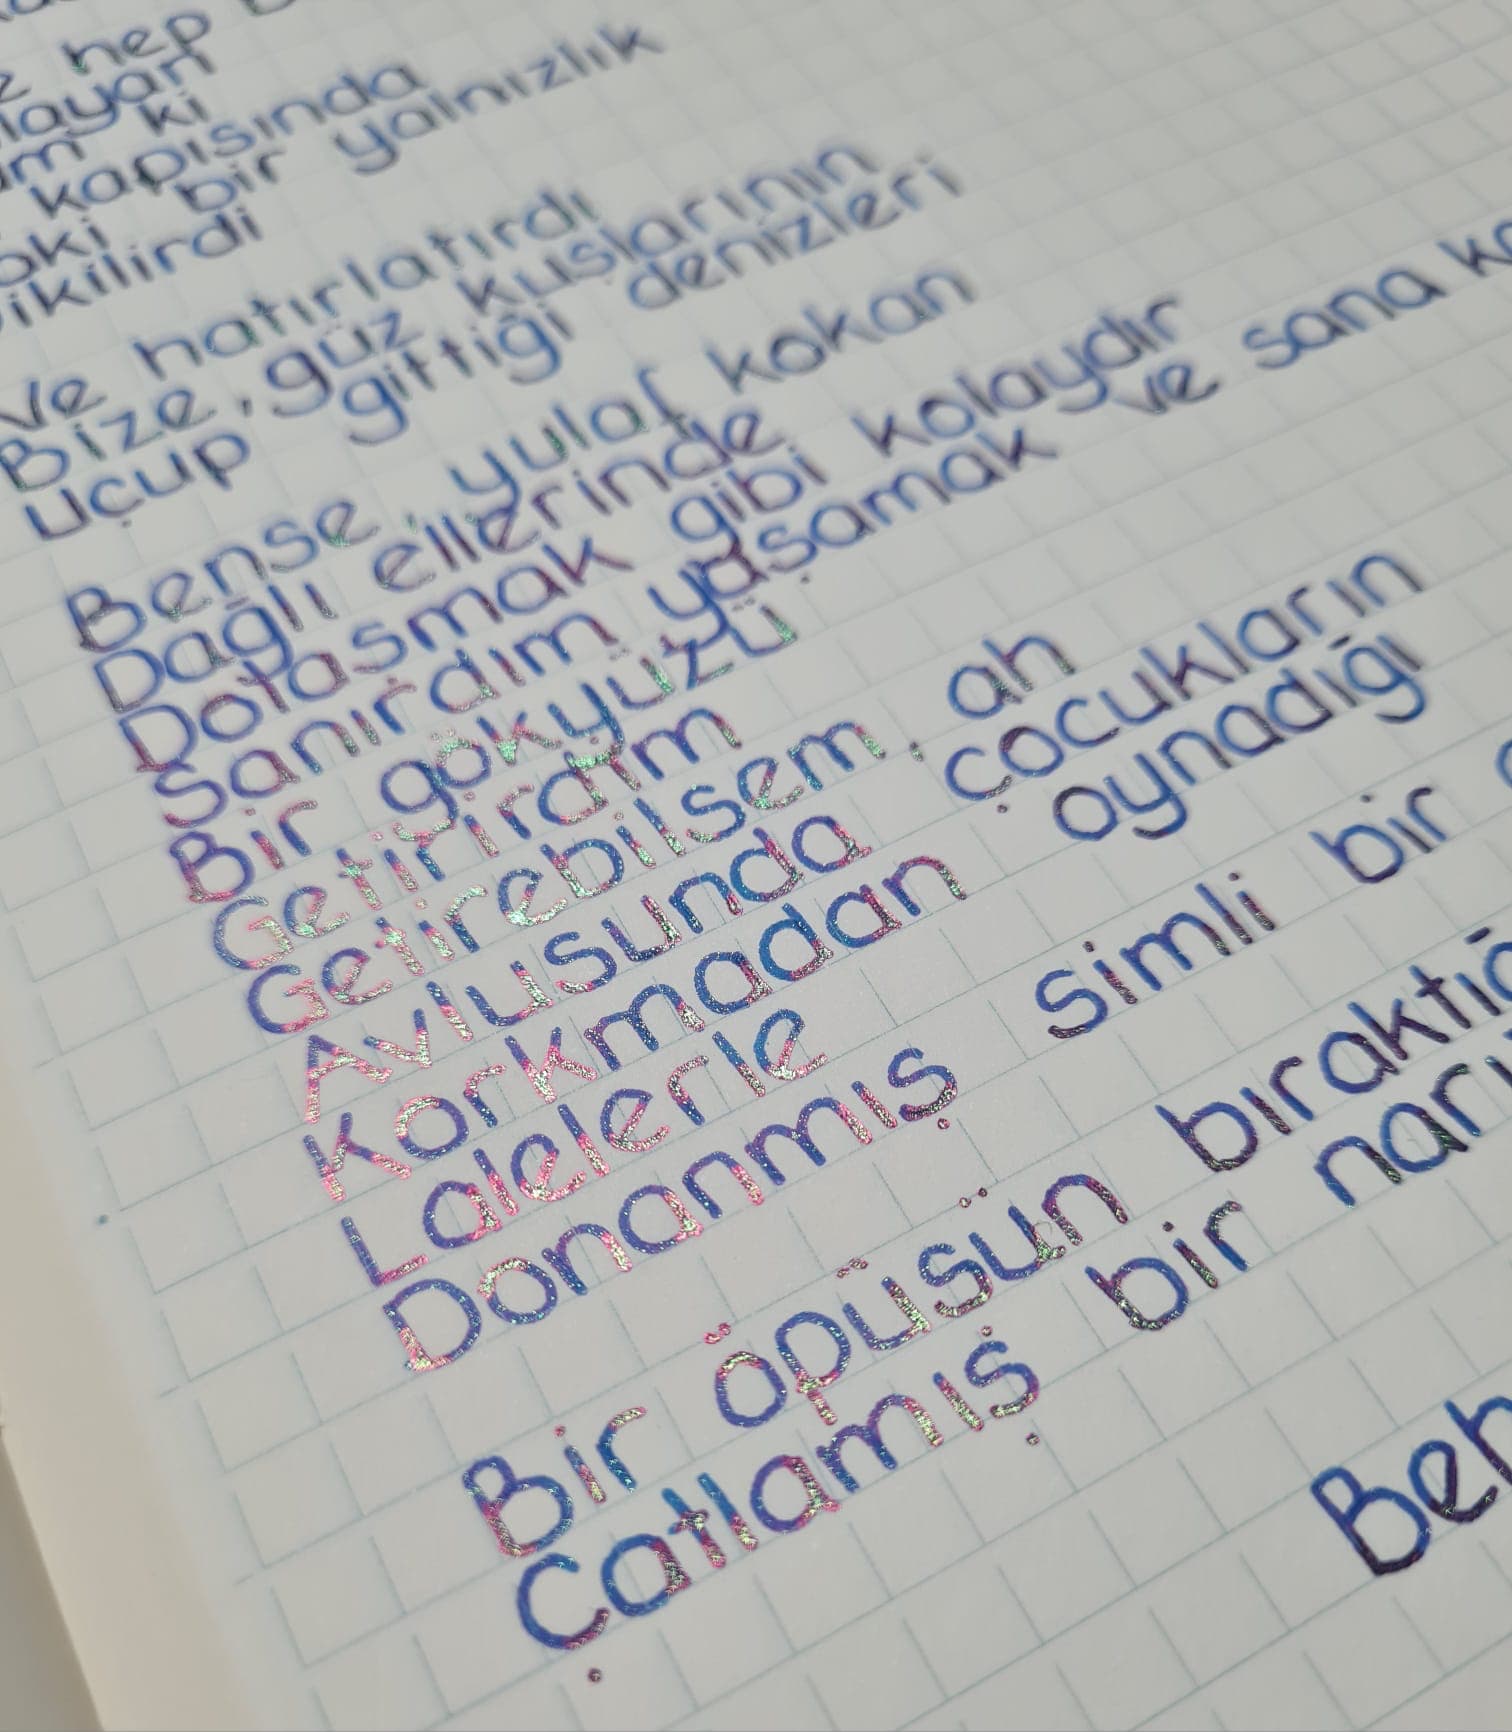 hep
kapısında
bir yalnızlık
Ve hatırlatırdı
Bize, güz kuşlarının
Uçup gittiği denizleri
Bense, yulaf kokan
Dağlı ellerinde
Dolaşmak gibi kolaydır
Sanırdım yaşamak ve sana
Bir gökyüzü
Getirirdim
Getirebilsem, ah
Avlusunda çocukların
Korkmadan oynadığı
Lalelerle
Donanmış simli bir
Bir öpüşün
Çatlamış bir